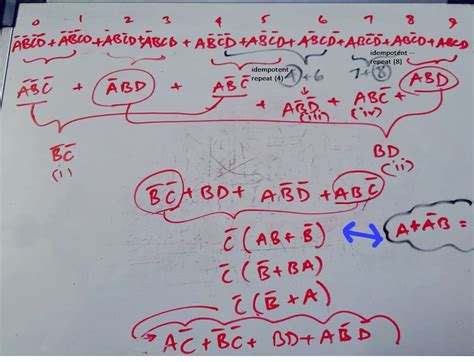 0 1 2 3 4 5 6 7 8 9
A̅B̅C̅D̅ + A̅B̅C̅D + A̅BC̅D + A̅BCD + AB̅C̅D̅ + AB̅C̅D + AB̅CD̅ + ABC̅D̅ + ABC̅D + ABCD
idempotent repeat (4) 4+6 7+8 idempotent -- repeat (8)
A̅B̅C̅ + A̅BD + AB̅C̅ + AB̅D̅ (iii) + ABC̅ (iv) + ABD
B̅C̅ (i) BD (ii)
B̅C̅ + BD + AB̅D̅ + ABC̅
C̅(AB + B̅) A + A̅B =
C̅(B̅ + BA)
C̅(B̅ + A)
AC̅ + B̅C̅ + BD + AB̅D̅